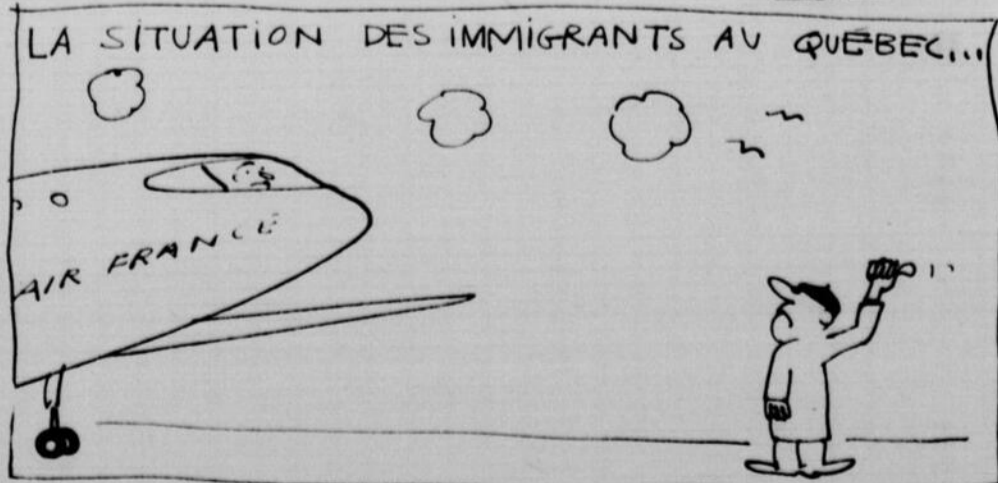 LA SITUATION DES IMMIGRANTS AU QUÉBEC...
AIR FRANCE